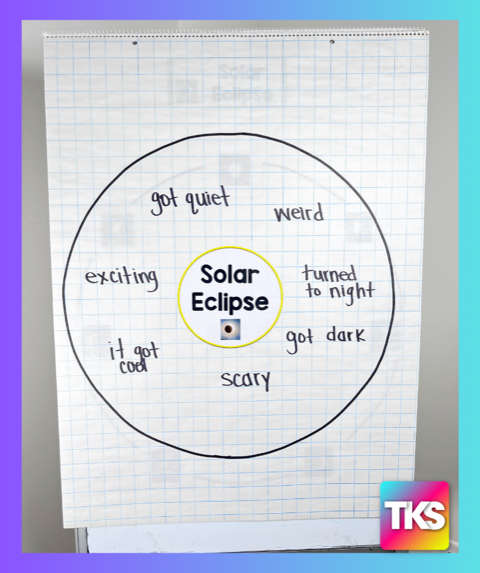 got quiet
weird
exciting
Solar
Eclipse
turned
to night
got dark
it got
cool
scary
TKS
Solar
Eclipse